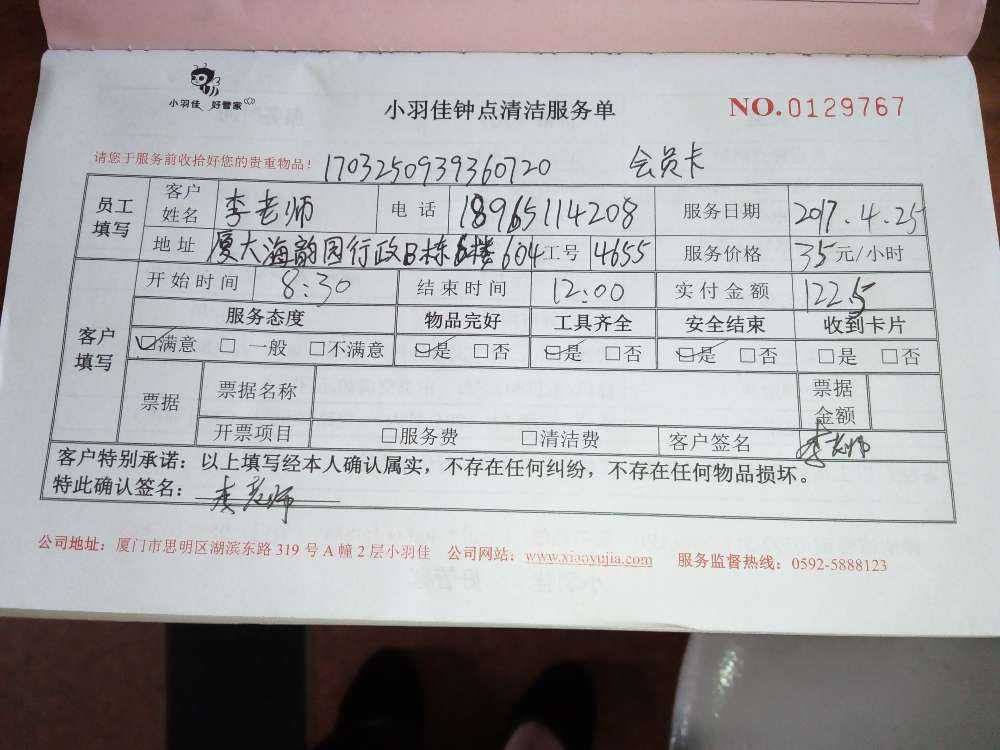 小羽佳 好管家
小羽佳钟点清洁服务单
NO.0129767
请您于服务前收拾好您的贵重物品! 1703250939360720 会员卡
员工填写 客户姓名 李老师 电话 18965114208 服务日期 2017.4.25
地址 厦大海韵园行政B栋 楼604 工号 4655 服务价格 35元/小时
开始时间 8:30 结束时间 12:00 实付金额 122.5
客户填写 服务态度 物品完好 工具齐全 安全结束 收到卡片
☑满意 □一般 □不满意 ☑是 □否 ☑是 □否 ☑是 □否 □是 □否
票据 票据名称 票据金额
开票项目 □服务费 □清洁费 客户签名 李老师
客户特别承诺：以上填写经本人确认属实，不存在任何纠纷，不存在任何物品损坏。
特此确认签名：李老师
公司地址：厦门市思明区湖滨东路 319 号 A 幢 2 层小羽佳 公司网站：www.xiaoyujia.com 服务监督热线：0592-5888123